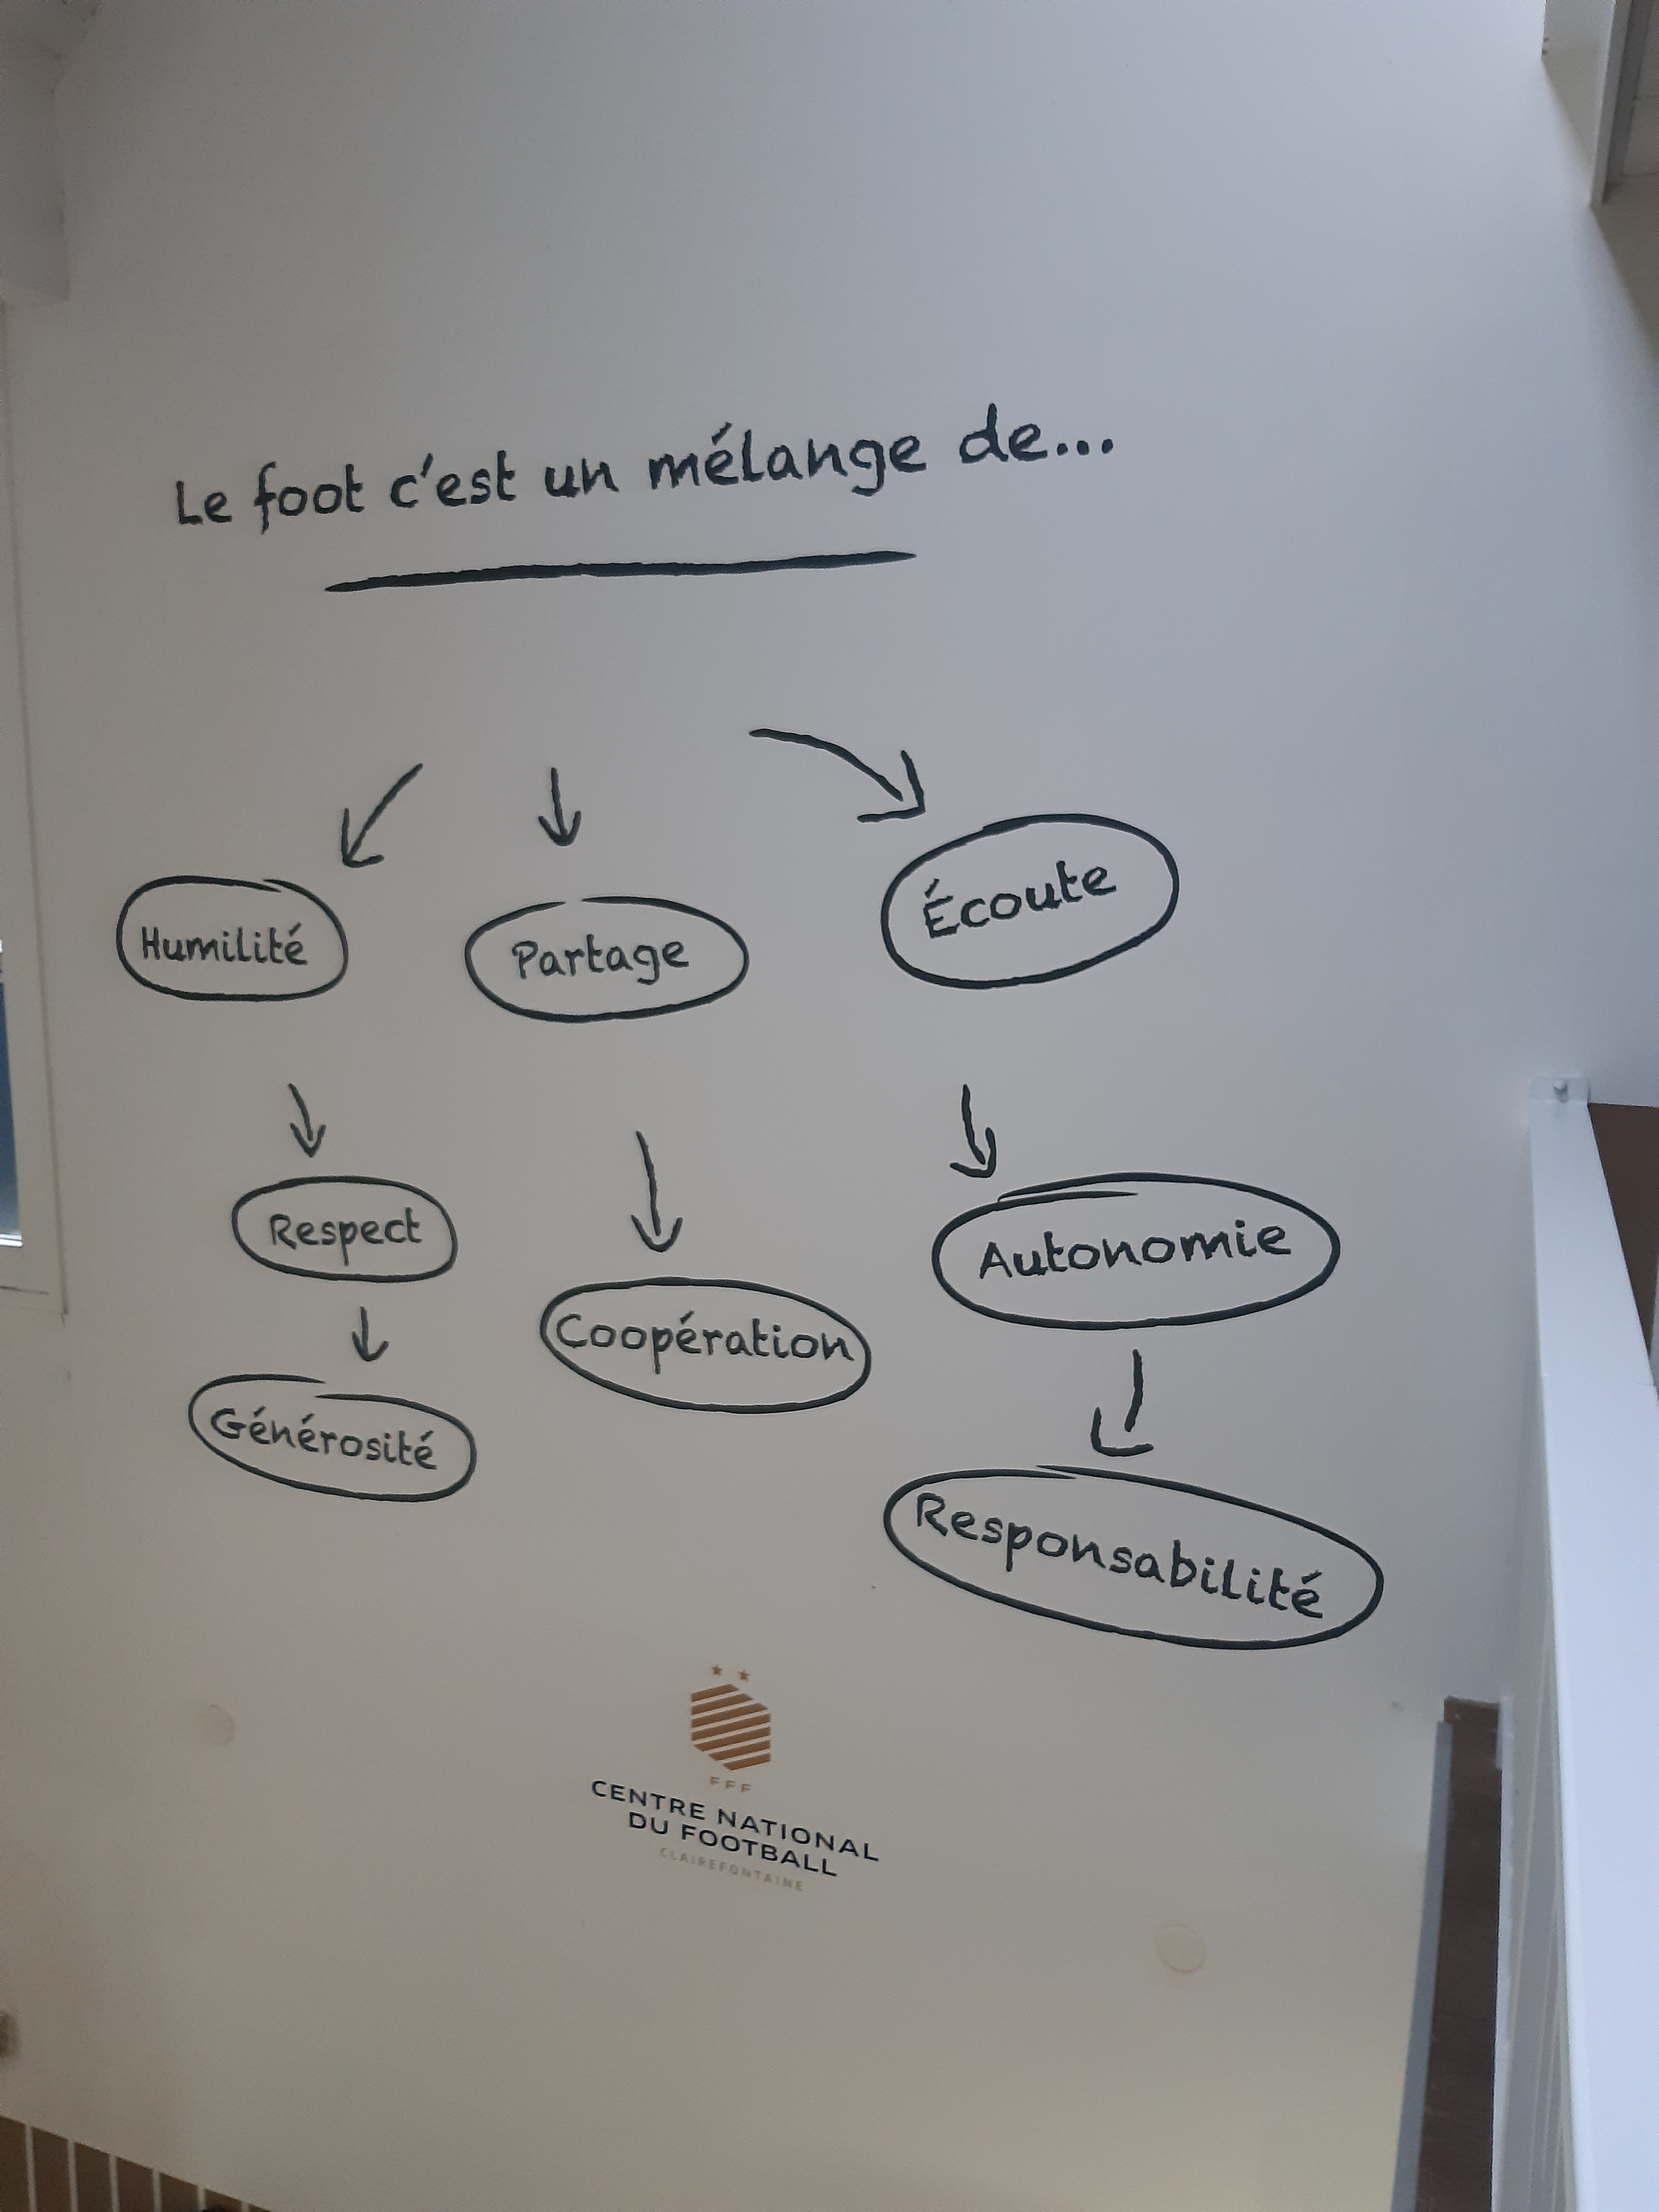 Le foot c'est un mélange de...
Humilité
Partage
Écoute
Respect
Coopération
Autonomie
Générosité
Responsabilité
FFF
CENTRE NATIONAL
DU FOOTBALL
CLAIREFONTAINE